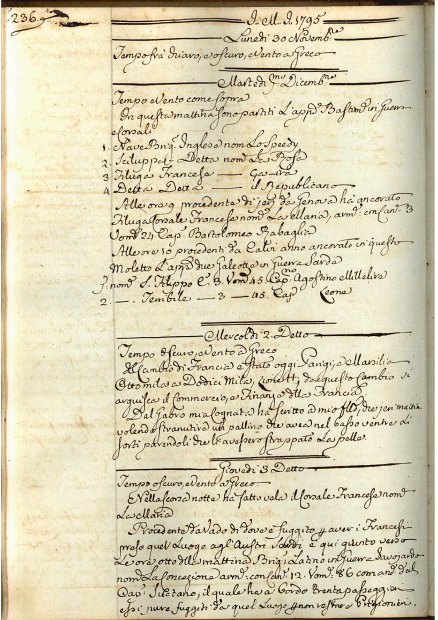 236.
J. M. J. 1795
Lunedi 30 Novemb.re
Tempo frà chiaro, e oscuro, e Vento a Greco
Martedi p.mo Dicemb.re
Tempo e Vento come sopra
In questa mattina sono partiti L'app.i Bastim.ti in Guerra
e Corsali
1. Nave Brig. Inglese nom. Lo Speedy
2. Sciluppa Detta nom. La Rosa
3 Filuga Francese —
4 Detta Detta — il Republicano
Alle ore 9 procidente di jeri da Genova ha ancorato
Filuga Corsale Francese nom. La Eliana, arm. con Can. 3
Vom. 24 Cap. Bartolomeo Rabaglia
Alle ore 10 procedenti da Calvi anno ancorato in questo
Moletto L'app. due Galeotte in Guerra Sarda
1. nom. S. Filippo C. 3. Vom. 45 Cap.no Agostino Millelire
2. —. Temibile — 3 — 45. Cap. Leone
Mercoldi 2. Detto
Tempo Oscuro, e Vento a Greco
Il Cambio di Francia è stato oggi Parigi, e Marsilia
Otto mila a Dodici Mila, da questo Cambio si
il Commercio, e Finanze della Francia
Del Gabro mia Cognata ha scritto a mio che jeri mattina
volendo stranutire un pallino che avea nel basso ventre di
sorti parendoli che li avessero strappato La pelle.
Giovedi 3 Detto
Tempo oscuro, e Vento a Greco
Nella scorsa notte ha fatto vele il Corsale Francese nom.
La Eliana
Procedente da Vado di dove è fuggito p. aver i Francesi
preso quel Luogo agli Austri Sardi è qui giunto verso
Le ore otto di Sta mattina Brig. Latino in Guerra
nom. La Concezione arm. con Can. 12. Vom. 86 comand. dal
Cap. il quale ha a bordo trenta passeggieri
essi pure fuggiti da quel Luogo p. non restare Prigionieri.